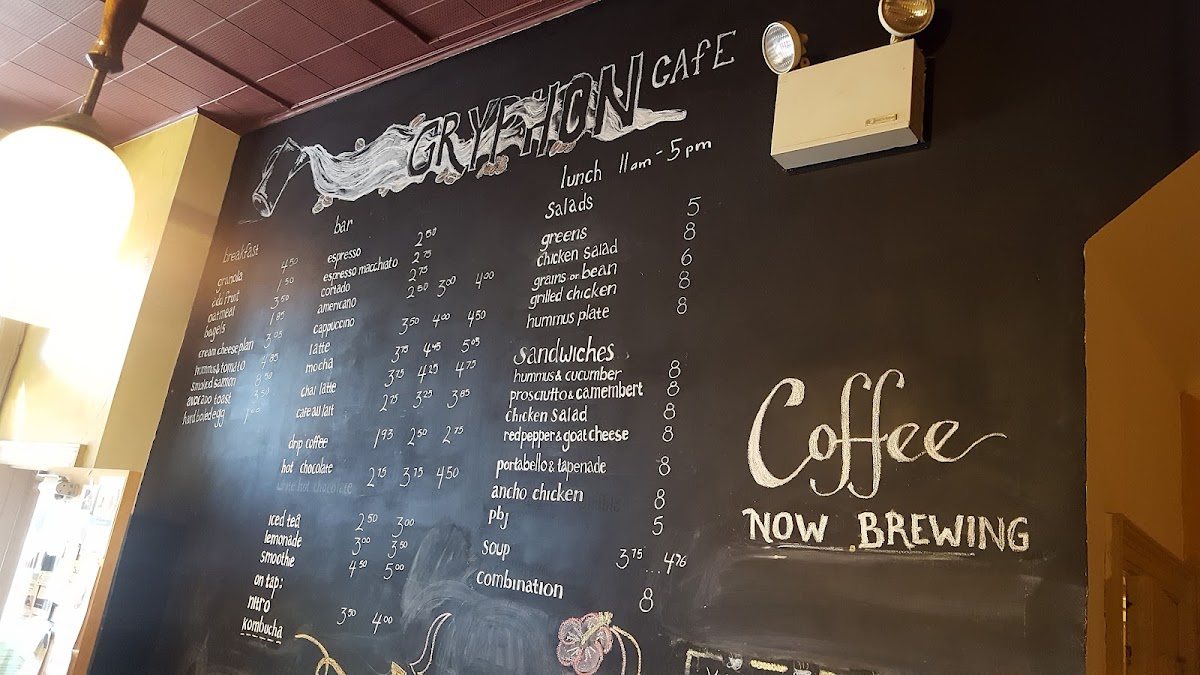 GRYPHON CAFE
breakfast
granola 4.50
add fruit 1.50
oatmeal 3.50
bagels 1.85
cream cheese plain 3.05
hummus & tomato 4.85
smoked salmon 8.50
avocado toast 3.50
hard boiled egg
bar
espresso 2.50
espresso macchiato 2.75
cortado 2.75
americano 2.50 3.00 4.00
cappuccino
latte 3.50 4.00 4.50
mocha 3.75 4.45 5.05
chai latte 3.75 4.25 4.75
cafe au lait 2.75 3.25 3.85
drip coffee 1.93 2.50 2.75
hot chocolate 2.75 3.75 4.50
white hot chocolate
iced tea 2.50 3.00
lemonade 3.00 3.50
smoothe 4.50 5.00
on tap:
nitro
kombucha 3.50 4.00
lunch 11am - 5pm
salads
greens 5
chicken salad 8
grains or bean 6
grilled chicken 8
hummus plate 8
Sandwiches
hummus & cucumber 8
prosciutto & camembert 8
chicken salad 8
red pepper & goat cheese 8
portabello & tapenade 8
ancho chicken 8
pbj 5
soup 3.75 ... 4.96
combination 8
Coffee
NOW BREWING